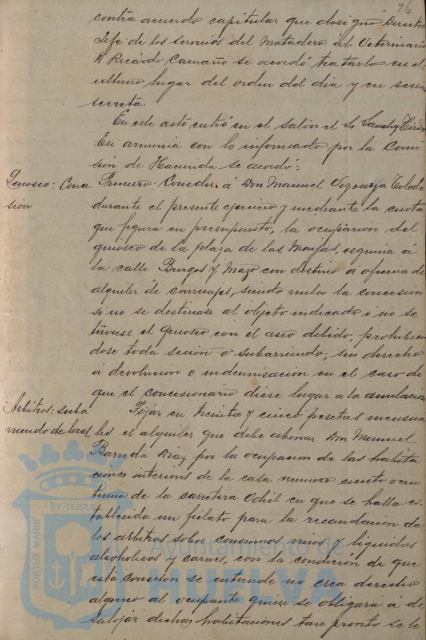 76
contra acuerdo capitular que designó Director
Jefe de los servicios del Matadero al Veterinario
D. Ricardo Camaño se acordó tratarlo en el
ultimo lugar del orden del dia y en sesion
secreta.
En este acto entró en el salón el Sr.
En armonia con lo informado por la Comi
sión de Hacienda se acordó:
Quiosco: Conce
sión
Primero = Conceder á Don Manuel Vizcaya Toledo
durante el presente ejercicio y mediante la cuota
que figura en presupuesto, la ocupacion del
quiosco de la plaza de las Monjas, esquina á
la calle Burgos y Mazo con destino á oficina de
alquiler de carruajes, siendo nula la concesión
si no se destinase al objeto indicado i no se
tuviese el quiosco con el aseo debido; prohibien
dose toda cesion o subarriendo, sin derecho
á devolucion o indemnizacion en el caso de
que el concesionario diere lugar a la anulacion
Arbitrios:
miendo de local
Fijar en treinta y cinco pesetas mensua
les el alquiler que debe abonar Don Manuel
Barreda Diaz por la ocupacion de las habita
ciones interiores de la casa numero ciento
de la carretera Odiel en que se halla es
tablecido un fielato para la recaudacion de
los arbitrios sobre consumos vinos y liquidos
alcoholicos y carnes, con la condición de que
esta concesion se entiende no crea derecho
alguno al ocupante quien se obligará á de
salojar dichas habitaciones tan pronto se le
PORTUS MARIS ET TERRAE
Ayuntamiento de
HUELVA